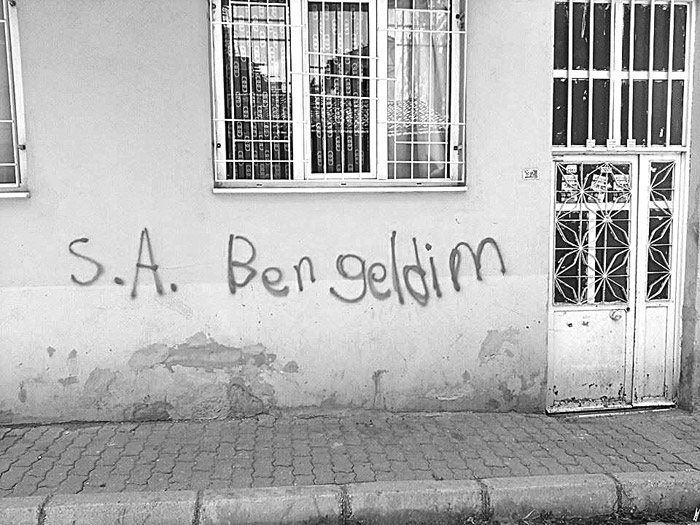 S.A. Ben geldim